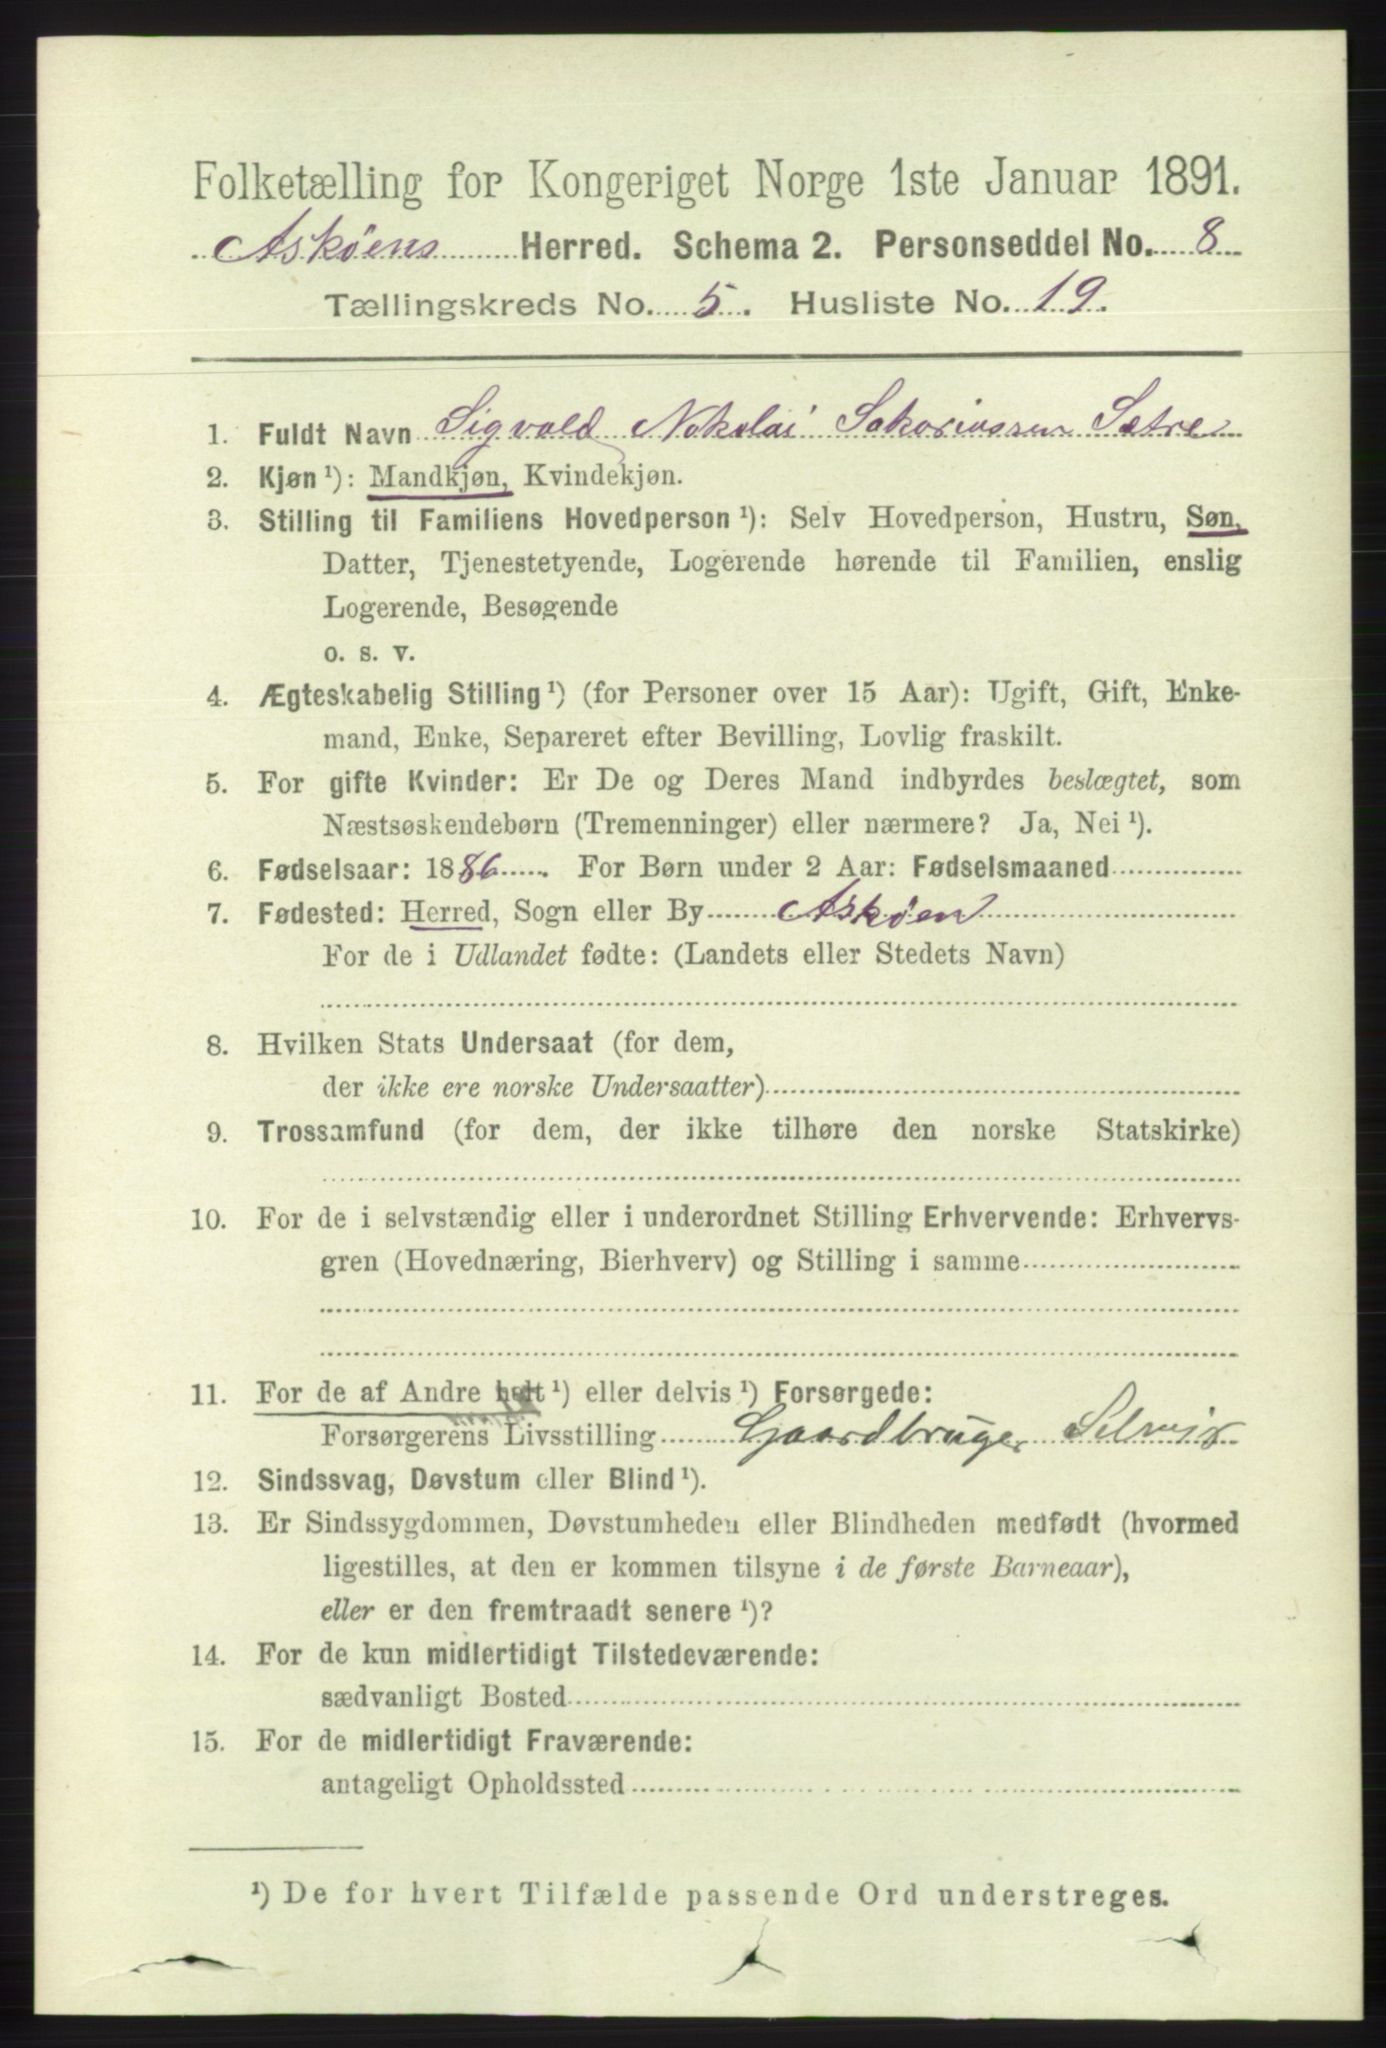 Folketælling for Kongeriget Norge 1ste Januar 1891.
Askøens Herred. Schema 2. Personseddel No. 8
Tællingskreds No. 5. Husliste No. 19.
1. Fuldt Navn Sigvald Nikolai Sakariassen Sætre
2. Kjøn ¹): Mandkjøn, Kvindekjøn.
3. Stilling til Familiens Hovedperson ¹): Selv Hovedperson, Hustru, Søn,
Datter, Tjenestetyende, Logerende hørende til Familien, enslig
Logerende, Besøgende
o. s. v.
4. Ægteskabelig Stilling ¹) (for Personer over 15 Aar): Ugift, Gift, Enke-
mand, Enke, Separeret efter Bevilling, Lovlig fraskilt.
5. For gifte Kvinder: Er De og Deres Mand indbyrdes beslægtet, som
Næstsøskendebørn (Tremenninger) eller nærmere? Ja, Nei ¹).
6. Fødselsaar: 1886. For Børn under 2 Aar: Fødselsmaaned
7. Fødested: Herred, Sogn eller By Askøen
For de i Udlandet fødte: (Landets eller Stedets Navn)
8. Hvilken Stats Undersaat (for dem,
der ikke ere norske Undersaatter)
9. Trossamfund (for dem, der ikke tilhøre den norske Statskirke)
10. For de i selvstændig eller i underordnet Stilling Erhvervende: Erhvervs-
gren (Hovednæring, Bierhverv) og Stilling i samme
11. For de af Andre helt ¹) eller delvis ¹) Forsørgede:
Forsørgerens Livsstilling Gaardbruger Selveier
12. Sindssvag, Døvstum eller Blind ¹).
13. Er Sindssygdommen, Døvstumheden eller Blindheden medfødt (hvormed
ligestilles, at den er kommen tilsyne i de første Barneaar),
eller er den fremtraadt senere ¹)?
14. For de kun midlertidigt Tilstedeværende:
sædvanligt Bosted
15. For de midlertidigt Fraværende:
antageligt Opholdssted
¹) De for hvert Tilfælde passende Ord understreges.